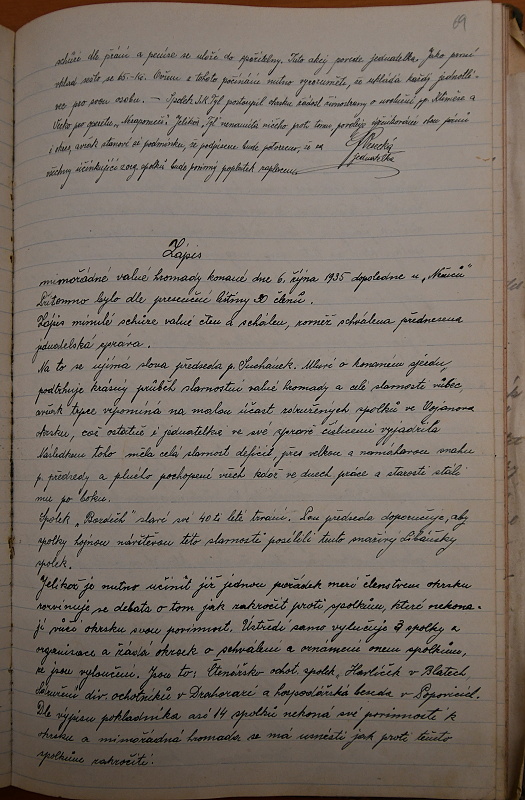 69
schůzí dle přání a peníze se uloží do spořitelny. Tuto akci povede jednatelka. Jako první
vklad sešlo se 65.- Kč. Ovšem z tohoto počínání nutno vyrozuměti, že vkládá každý jednotli-
vec pro svou osobu. – Spolek J.K.Tyl postoupil okrsku žádost o uvolnění pp. Klimeše a
Vrko pro operetu „Nezapomeň". Jelikož „Tyl" nenamítá ničeho proti tomu, povoluje spoluúčinkování obou pánů
i okres, avšak stanoví za podmínku, že podepsané bude potvrzeno, že za
všechny účinkující z org. spolků bude povinný poplatek zaplacen.
jednatelka
Zápis
mimořádné valné hromady konané dne 6. října 1935 dopoledne u „Němců"
Přítomno bylo dle presenční listiny 20 členů.
Zápis minulé schůze valné čten a schálen, rovněž schválena přednesena
jednatelská zpráva.
Na to se ujímá slova předseda p. Suchánek. Mluví o konaném sjezdu,
podtrhuje krásný průběh slavnostní valné hromady a celé slavnosti vůbec,
avšak trpce vzpomíná na malou účast sdružených spolků ve Vojanově
okrsku, což ostatně i jednatelka ve své zprávě číselně vyjádřila
Následkem toho měla celá slavnost deficit, přes velkou a namáhavou snahu
p. předsedy a plného pochopení všech kdož ve dnech práce a starostí stáli
mu po boku.
Spolek „Bozděch" slaví své 40ti leté trvání. Pan předseda doporučuje, aby
spolky hojnou návštěvou této slavnosti posílili tento snaživý Libáňský
spolek.
Jelikož je nutno učinit již jednou pořádek mezi členstvem okrsku
rozvinuje se debata o tom jak zakročit proti spolkům, které nekona-
jí vůči okrsku svou povinnost. Ústředí samo vylučuje 3 spolky z
organisace a žádá okrsek o schválení a oznámení oněm spolkům,
že jsou vyloučeni. Jsou to: Čtenářsko ochot. spolek „Havlíček" v Blatech,
sdružení div. ochotníků v Drahorazi a hospodářská beseda v Popovicích.
Dle výpisu pokladníka asi 14 spolků nekoná své povinnosti k
okrsku a mimořádná hromada se má usnésti jak proti těmto
spolkům zakročiti.